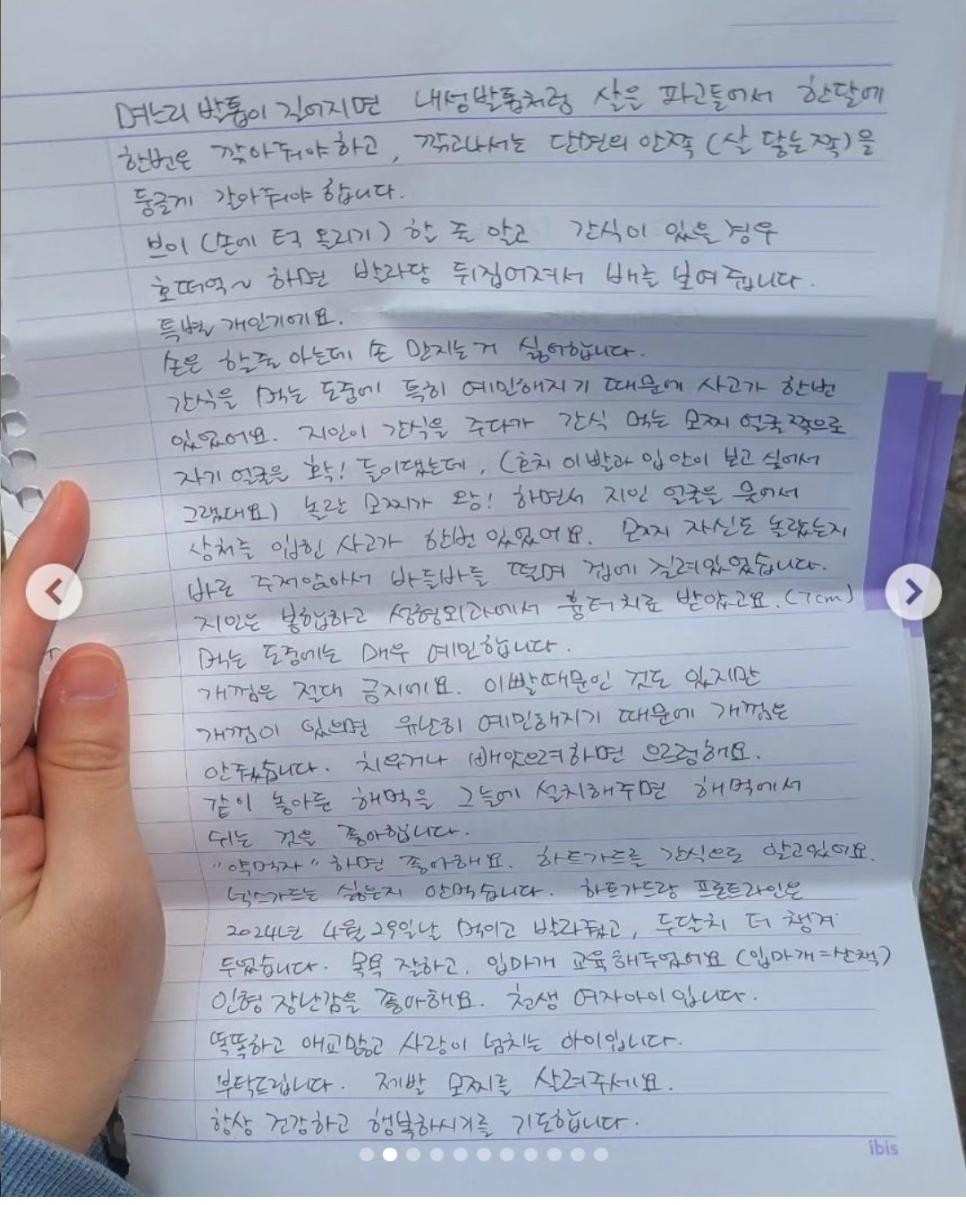 며느리 발톱이 길어지면 내성발톱처럼 살을 파고들어서 한달에
한번은 깎아줘야하고, 깎고나서는 단면의 안쪽(살 닿는쪽)을
둥글게 갈아줘야 합니다.
브이(손에 턱 올리기) 할 줄 알고 간식이 있을 경우
호떠억~ 하면 발라당 뒤집어져서 배를 보여줍니다.
특별 개인기에요.
손은 할줄 아는데 손 만지는거 싫어합니다.
간식을 먹는 도중에 특히 예민해지기 때문에 사고가 한번
있었어요. 지인이 간식을 주다가 간식 먹는 모찌 얼굴쪽으로
자기 얼굴을 확! 들이댔는데, (흔치 이빨과 입안이 보고 싶어서
그랬대요) 놀란 모찌가 왕! 하면서 지인 얼굴을 물어서
상처를 입힌 사고가 한번 있었어요. 모찌 자신도 놀랐는지
바로 주저앉아서 바들바들 떨며 겁에 질려있었습니다.
지인은 봉합하고 성형외과에서 흉터치료 받았고요. (7cm)
먹는 도중에는 매우 예민합니다.
개껌은 절대 금지에요. 이빨때문인 것도 있지만
개껌이 있으면 유난히 예민해지기 때문에 개껌은
안줬습니다. 치우거나 빼앗으려하면 으르렁해요.
같이 놓아둔 해먹을 그늘에 설치해주면 해먹에서
쉬는 것을 좋아합니다.
"약먹자" 하면 좋아해요. 하트가드를 간식으로 알고있어요.
넥스가드는 싫은지 안먹습니다. 하트가드랑 프론트라인은
2024년 4월 29일날 먹이고 발라줬고, 두달치 더 챙겨
두었습니다. 목욕 잘하고, 입마개 교육해두었어요 (입마개=산책)
인형 장난감을 좋아해요. 천생 여자아이입니다.
똑똑하고 애교많고 사랑이 넘치는 아이입니다.
부탁드립니다. 제발 모찌를 살려주세요.
항상 건강하고 행복하시기를 기도합니다.
ibis